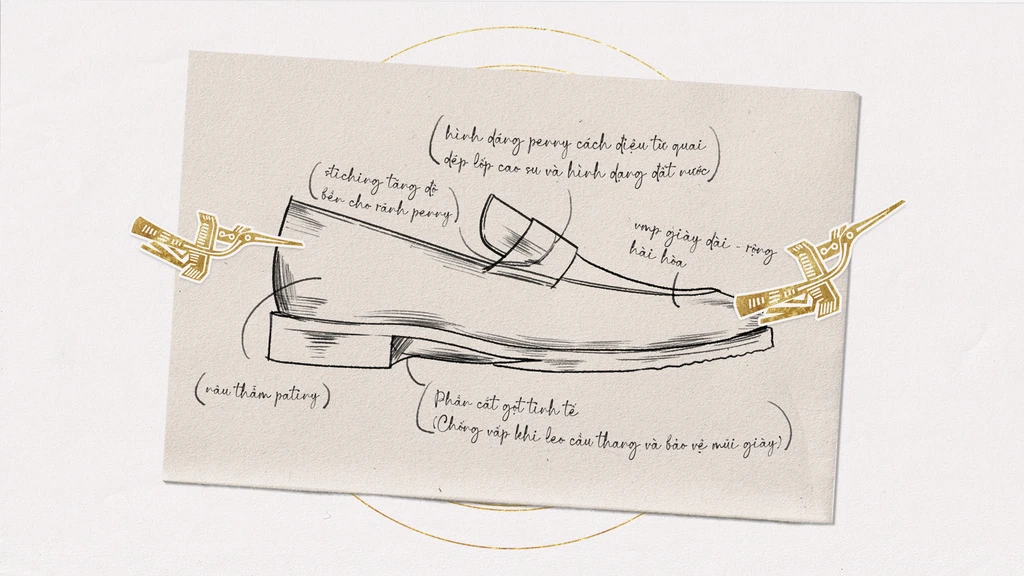 (hình dáng penny cách điệu từ quai
dép lốp cao su và hình dạng đất nước)
(stiching tăng độ
bền cho rãnh penny)
vmp giày dài - rộng
hài hòa
(nâu thẫm patiny)
(Phần cắt gọt tinh tế
(Chống vấp khi leo cầu thang và bảo vệ mũi giày))